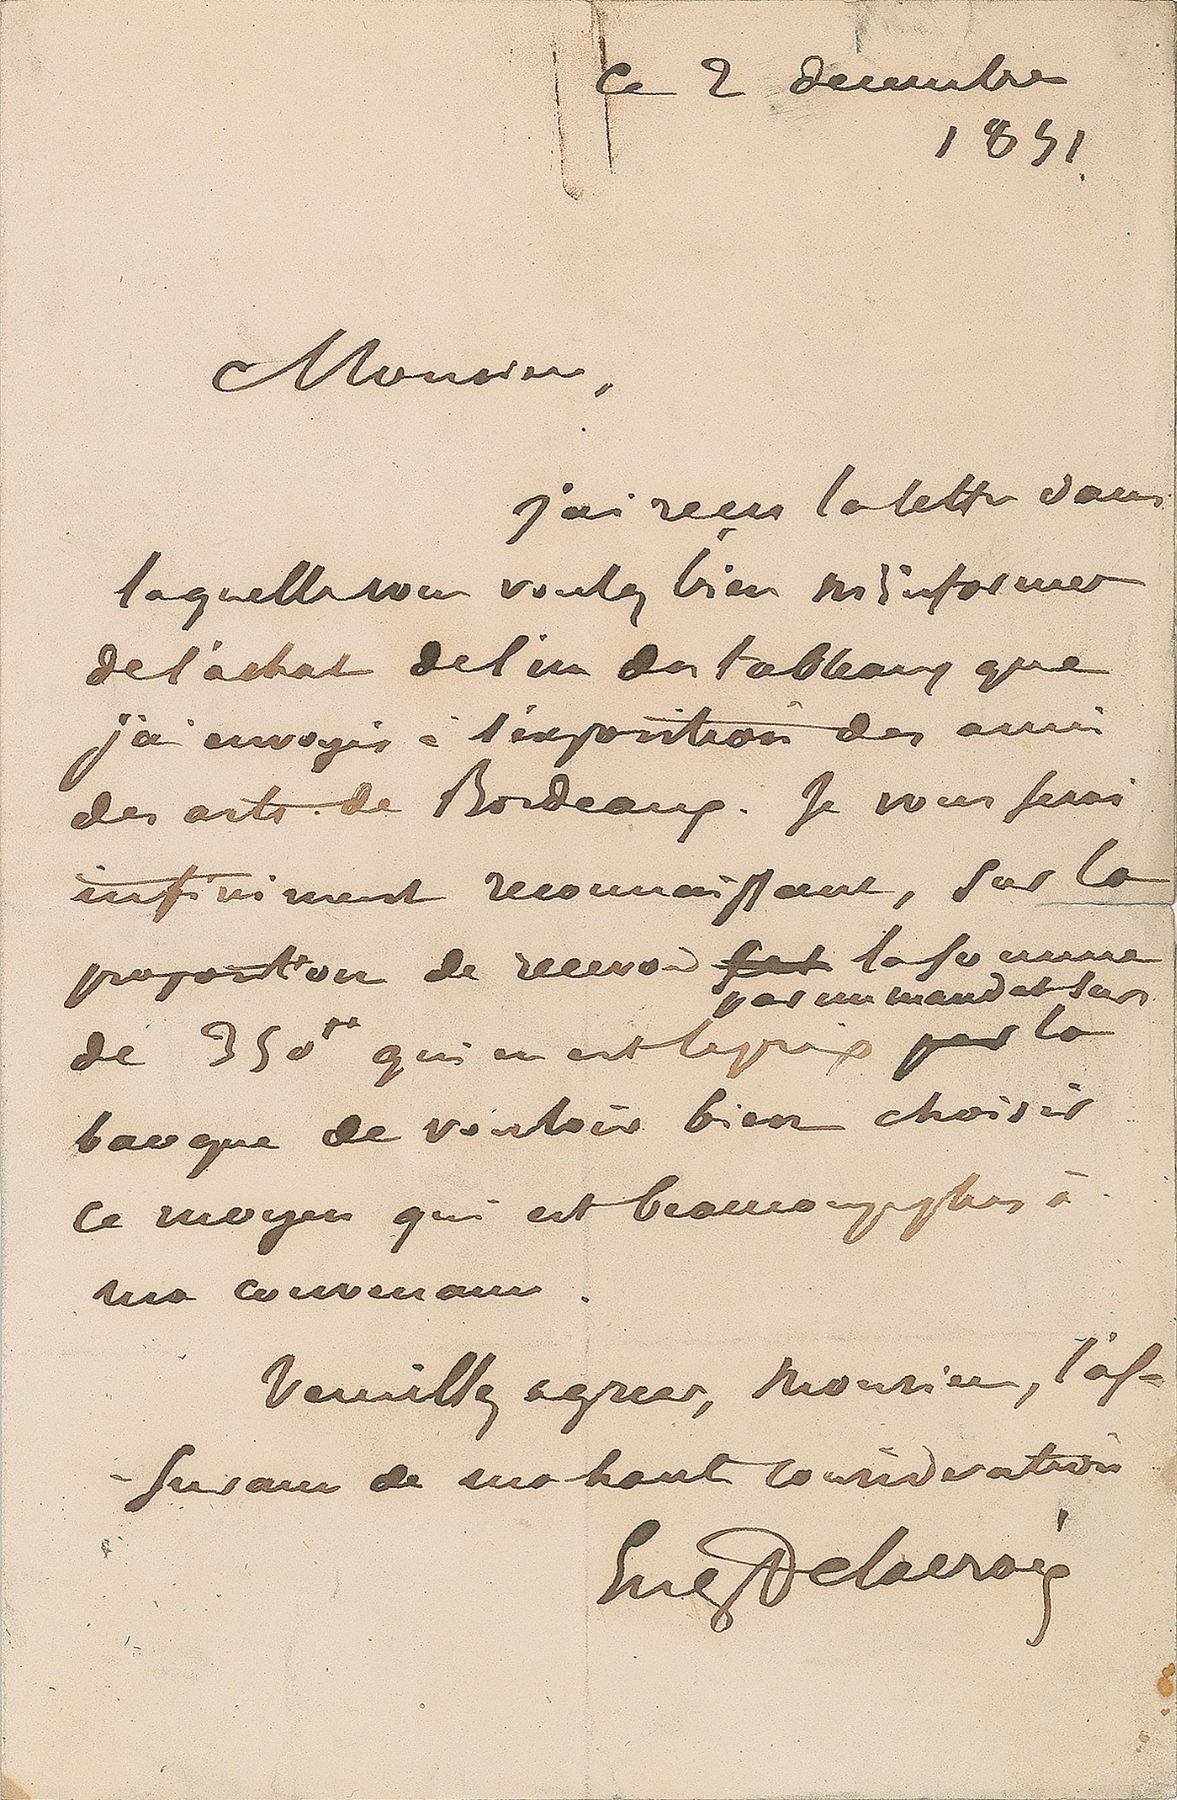 Ce 2 decembre
1851.
Monsieur,
j'ai reçu la lettre dans
laquelle vous voulez bien m'informer
de l'achat de l'un des tableaux que
j'ai envoyés à l'exposition des amis
des arts de Bordeaux. Je vous serai
infiniment reconnaissant, sur la
proposition de recevoir la somme
par un mandat sur
de 350 fr qui en est le prix par la
banque de vouloir bien choisir
ce moyen qui est beaucoup plus à
ma convenance.
Veuillez agreer, Monsieur, l'as-
-surance de ma haute considération
Eug Delacroix